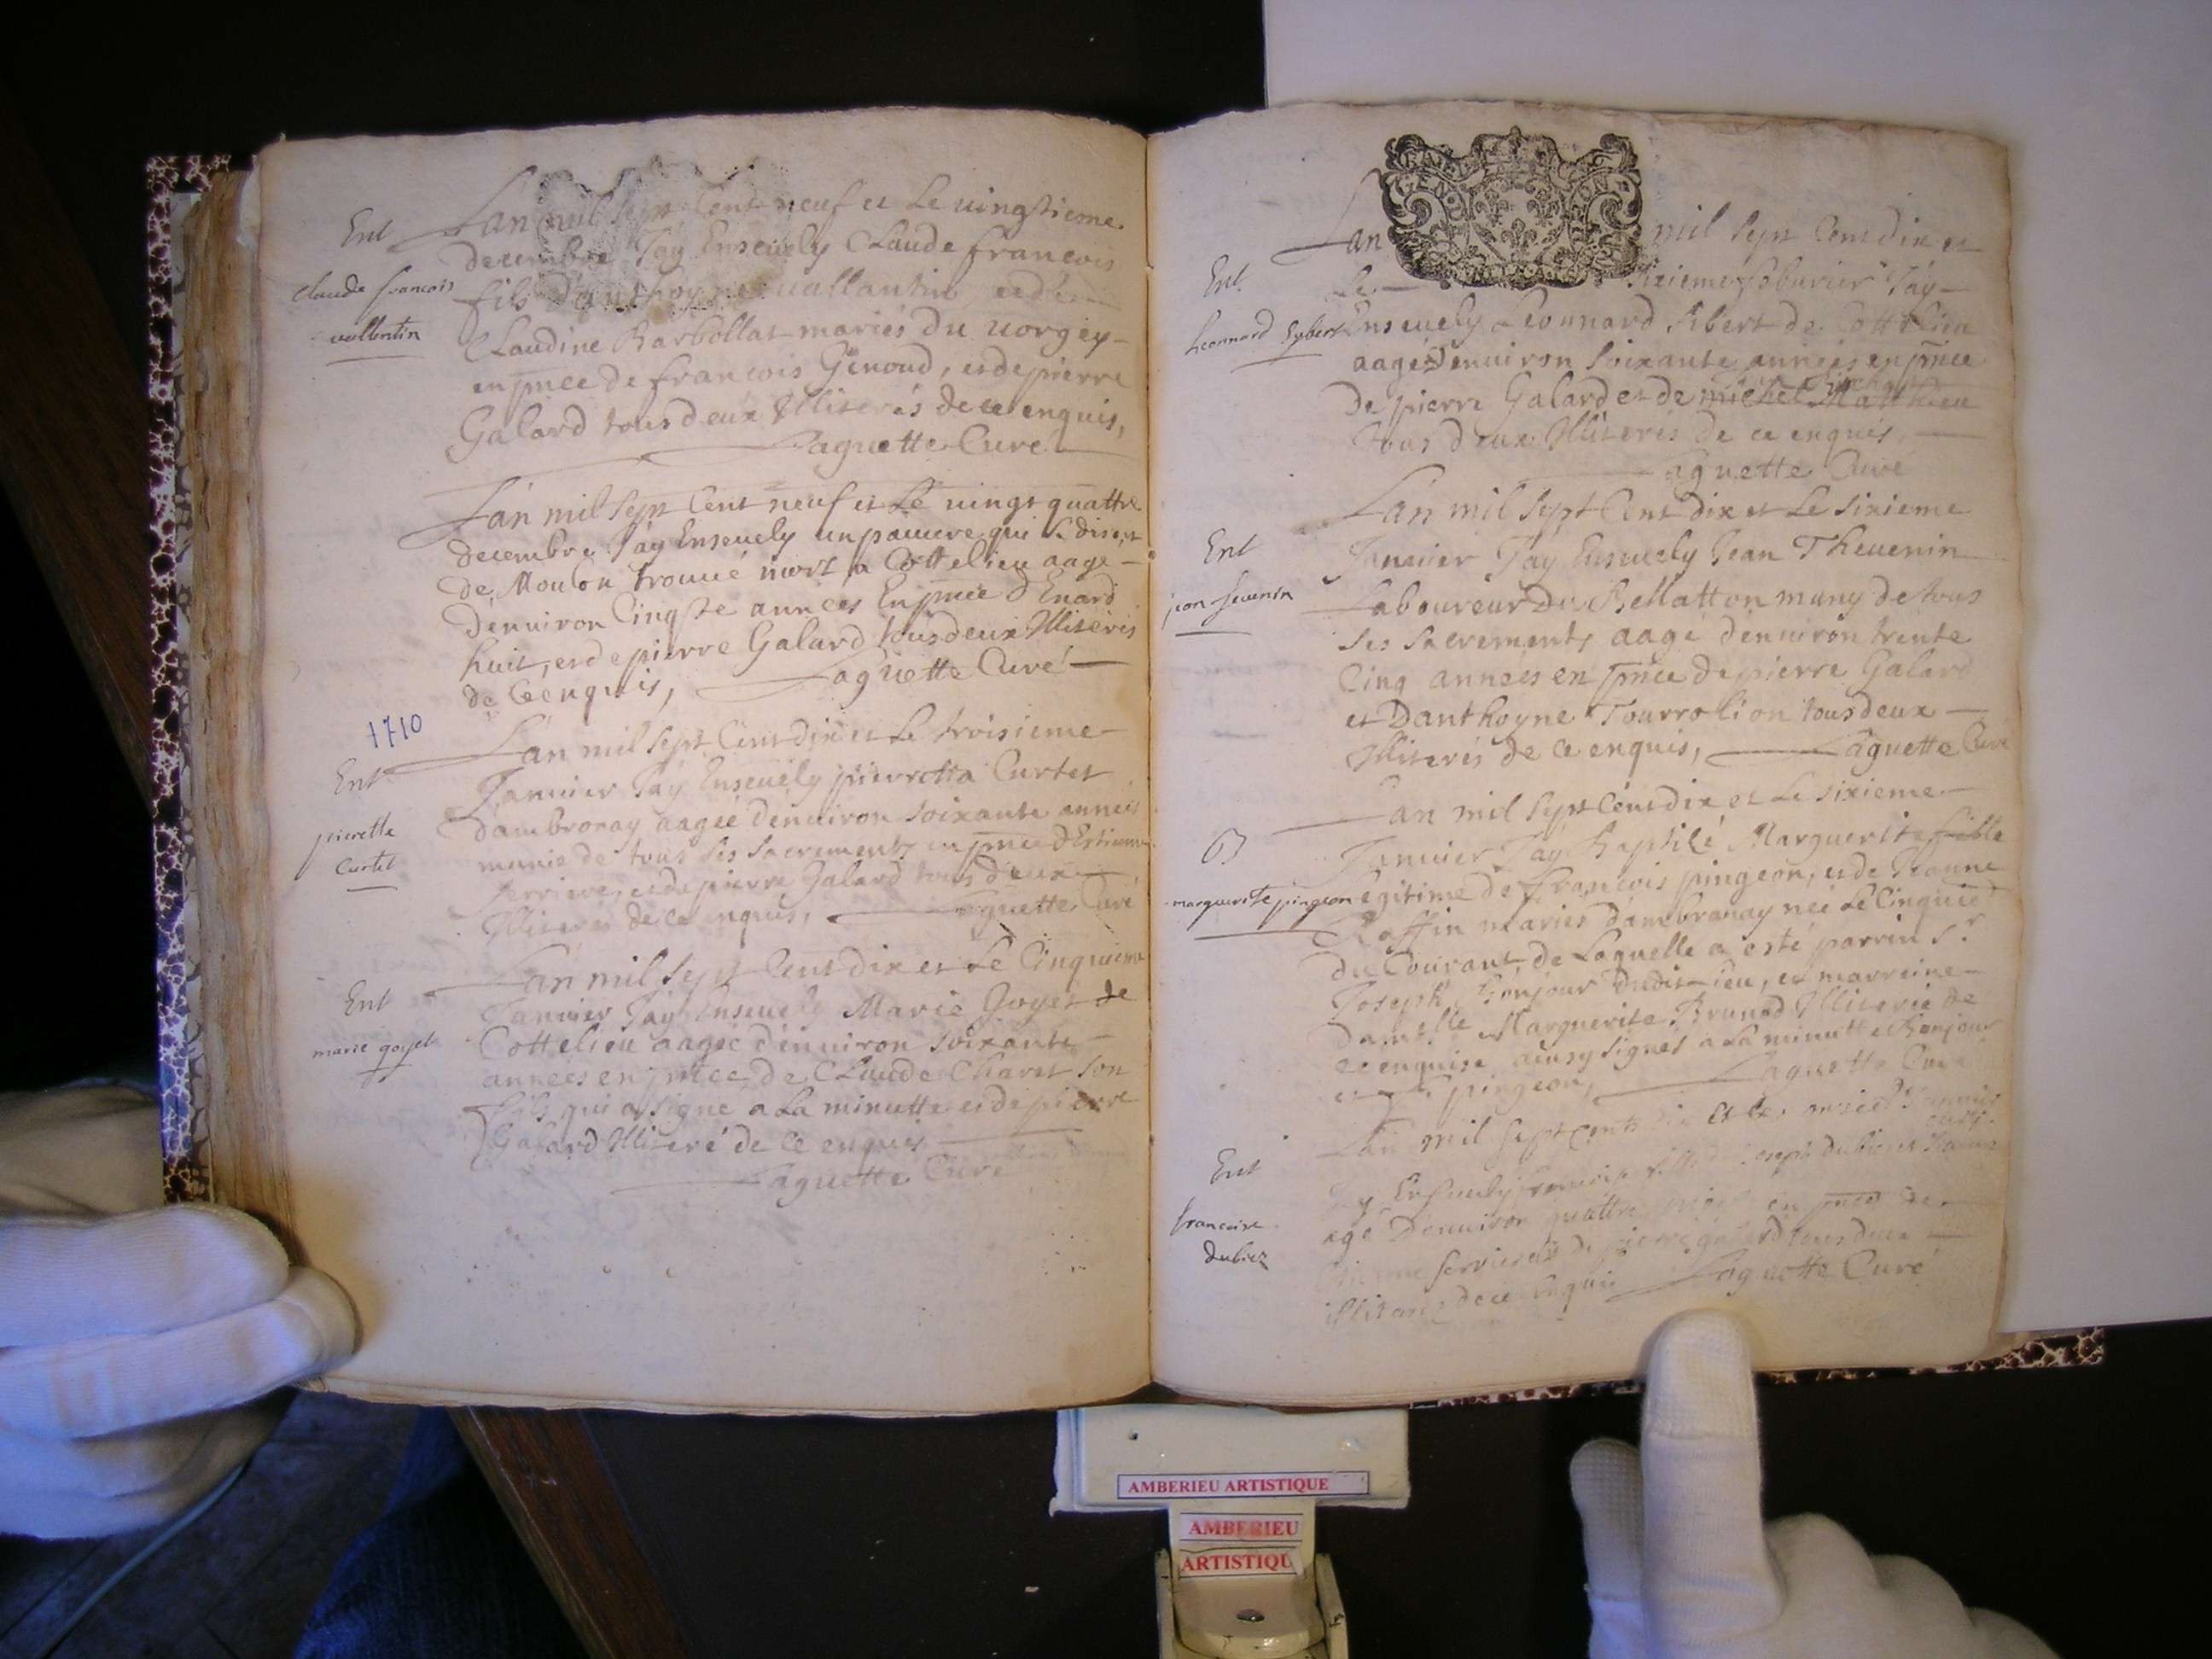 Ent
claude francois
vallentin
Lan mil sept Cent neuf et Le uingtieme
decembre Jay Enseuely Claude francois
fils Danthoyne uallantin et de
Claudine Barbollat mariés du uorgey
en pnce de francois Genoud, et de pierre
Galard tous deux Illiterés de ce enquis,
Laguette Curé
Lan mil sept Cent neuf et Le uingt quattre
decembre Jay Enseuely un pauure qui se disoit
de Moulon trouué mort a Cottelieu aagé
denuiron Cinq te années En pnce d Enard
huit, et de pierre Galard tous deux Illiterés
de Ce enquis, Laguette Curé
1710
Ent
pierette
Curtet
Lan mil sept Cent dix et Le troisieme
Januier Jay Enseuely pierretta Curtet
dambronay aagée denuiron soixante années
munie de tous ses sacrements en pnce d Estienne
Serriere, et de pierre Galard tous deux
Illiterés de Ce enquis, Laguette Curé
Ent
marie goyet
Lan mil sept Cent dix et Le Cinquieme
Januier Jay Enseuely Marie Goyet de
Cottelieu aagée denuiron soixante
années en pnce de Claude Charet son
fils qui a signé a La minutte et de pierre
Galard Illiteré de Ce enquis
Laguette Curé
Lan mil sept Cent dix et
Ent
Leonnard Sybert
Le feburier Jay
Enseuely Leonnard Sibert de Cottelieu
aagé denuiron soixante années en pnce
de pierre Galard et de michel
tous deux Illiterés de ce enquis,
Laguette Curé
Ent
jean feuenin
Lan mil sept Cent dix et Le sixieme
Januier Jay Enseuely Jean Theuenin
Laboureur Du Bellatton muny de tous
ses sacrements aagé denuiron trente
Cinq années en pnce de pierre Galard
et Danthoyne Tourrolion tous deux
Illiterés de Ce enquis, Laguette Curé
B
marguerite pingeon
Lan mil sept Cent dix et Le sixieme
Januier Jay Baptisé Marguerite fille
Legitime de francois pingeon, et de Jeanne
Raffin mariés dambronay née Le Cinquie
du Courant de Laquelle a esté parrin Sr
Joseph Bonjour dudit lieu, et marreine
Damlle Marguerite Brunod Illiterée de
ce enquise, aeusy signés a La minutte Bonjour
et pingeon, Laguette Curé
Ent
francoise
dubiez
Lan mil sept cents dix et Le onzie Januier
Jay Enseuely francoise fille de Joseph dubiez et
agé Denuiron quattre en pnce de
Estienne Serriere et de pierre galard tous deux
illiterés de ce enquis Laguette Curé
AMBERIEU ARTISTIQUE
AMBERIEU
ARTISTIQU